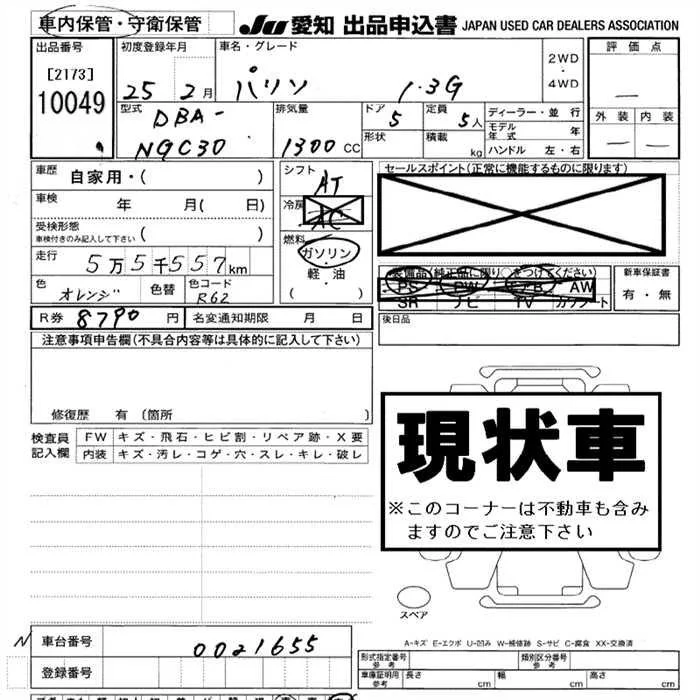 車内保管・守衛保管
JU 愛知 出品申込書 JAPAN USED CAR DEALERS ASSOCIATION
出品番号 初度登録年月 車名・グレード 2WD・4WD 評価点
[2173]
10049
25 2月 パッソ 1.3G
型式 排気量 ドア 定員 ディーラー・並行 外装 内装
DBA-
NGC30 1300 CC 5 5人
形状 積載 kg
モデル年式 年
ハンドル 左・右
車歴 自家用・( )
シフト AT
セールスポイント(正常に機能するものに限ります)
車検 年 月( 日)
冷房 AC
受検形態 ( )
車検付きのみ記入して下さい
燃料 ガソリン・軽油 ( )
走行 5万5千557km
装備品(純正品に限り○をつけてください)
PS PW エアB AW
SR ナビ TV カワシート
新車保証書 有・無
色 オレンジ 色替 色コード R62
R券 8790円 名変通知期限 月 日
後日品
注意事項申告欄(不具合内容等は具体的に記入して下さい)
修復歴 有 (箇所 )
現状車
※このコーナーは不動車も含み
ますのでご注意下さい
検査員記入欄
FW キズ・飛石・ヒビ割・リペア跡・X要
内装 キズ・汚レ・コゲ・穴・スレ・キレ・破レ
スペア
A-キズ E-エクボ U-凹み W-補修跡 S-サビ C-腐食 XX-交換済
N 車台番号 0021655
登録番号
型式指定番号 参考 類別区分番号 参考
車庫証明用 参考 長さ cm 幅 cm 高さ cm